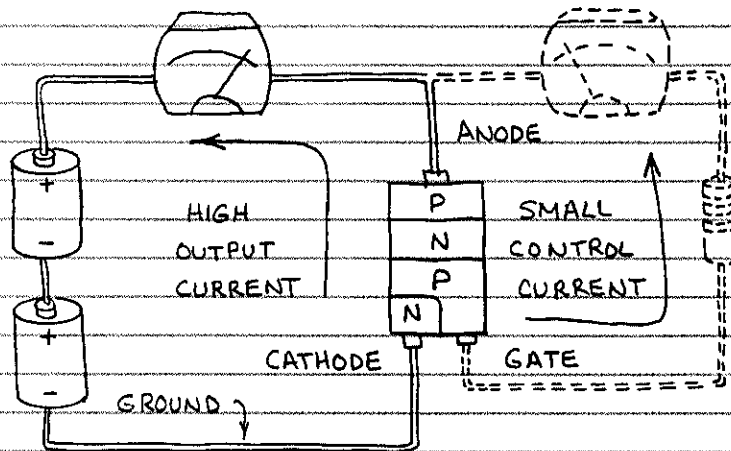 ANODE
HIGH
OUTPUT
CURRENT
P
N
P
N
SMALL
CONTROL
CURRENT
+
-
+
-
CATHODE
GATE
GROUND